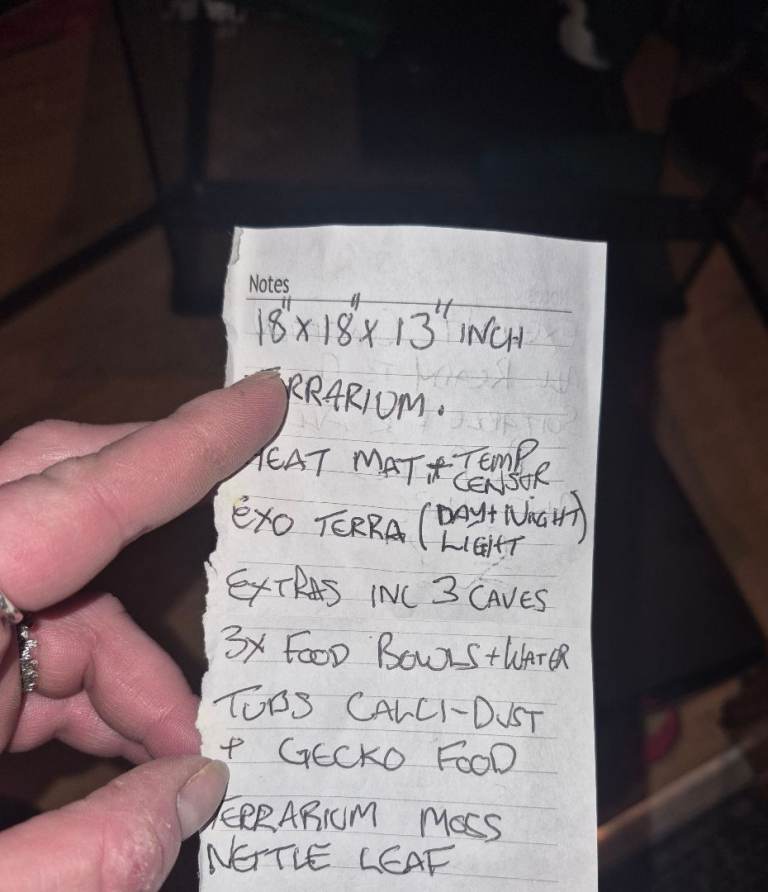 Notes
18" x 18" x 13" INCH
RRARIUM.
HEAT MAT + TEMP CENSOR
EXO TERRA (DAY + NIGHT) LIGHT
EXTRAS INC 3 CAVES
3x FOOD BOWLS + WATER
TUBS CALCI-DUST
+ GECKO FOOD
TERRARIUM MOSS
NETTLE LEAF